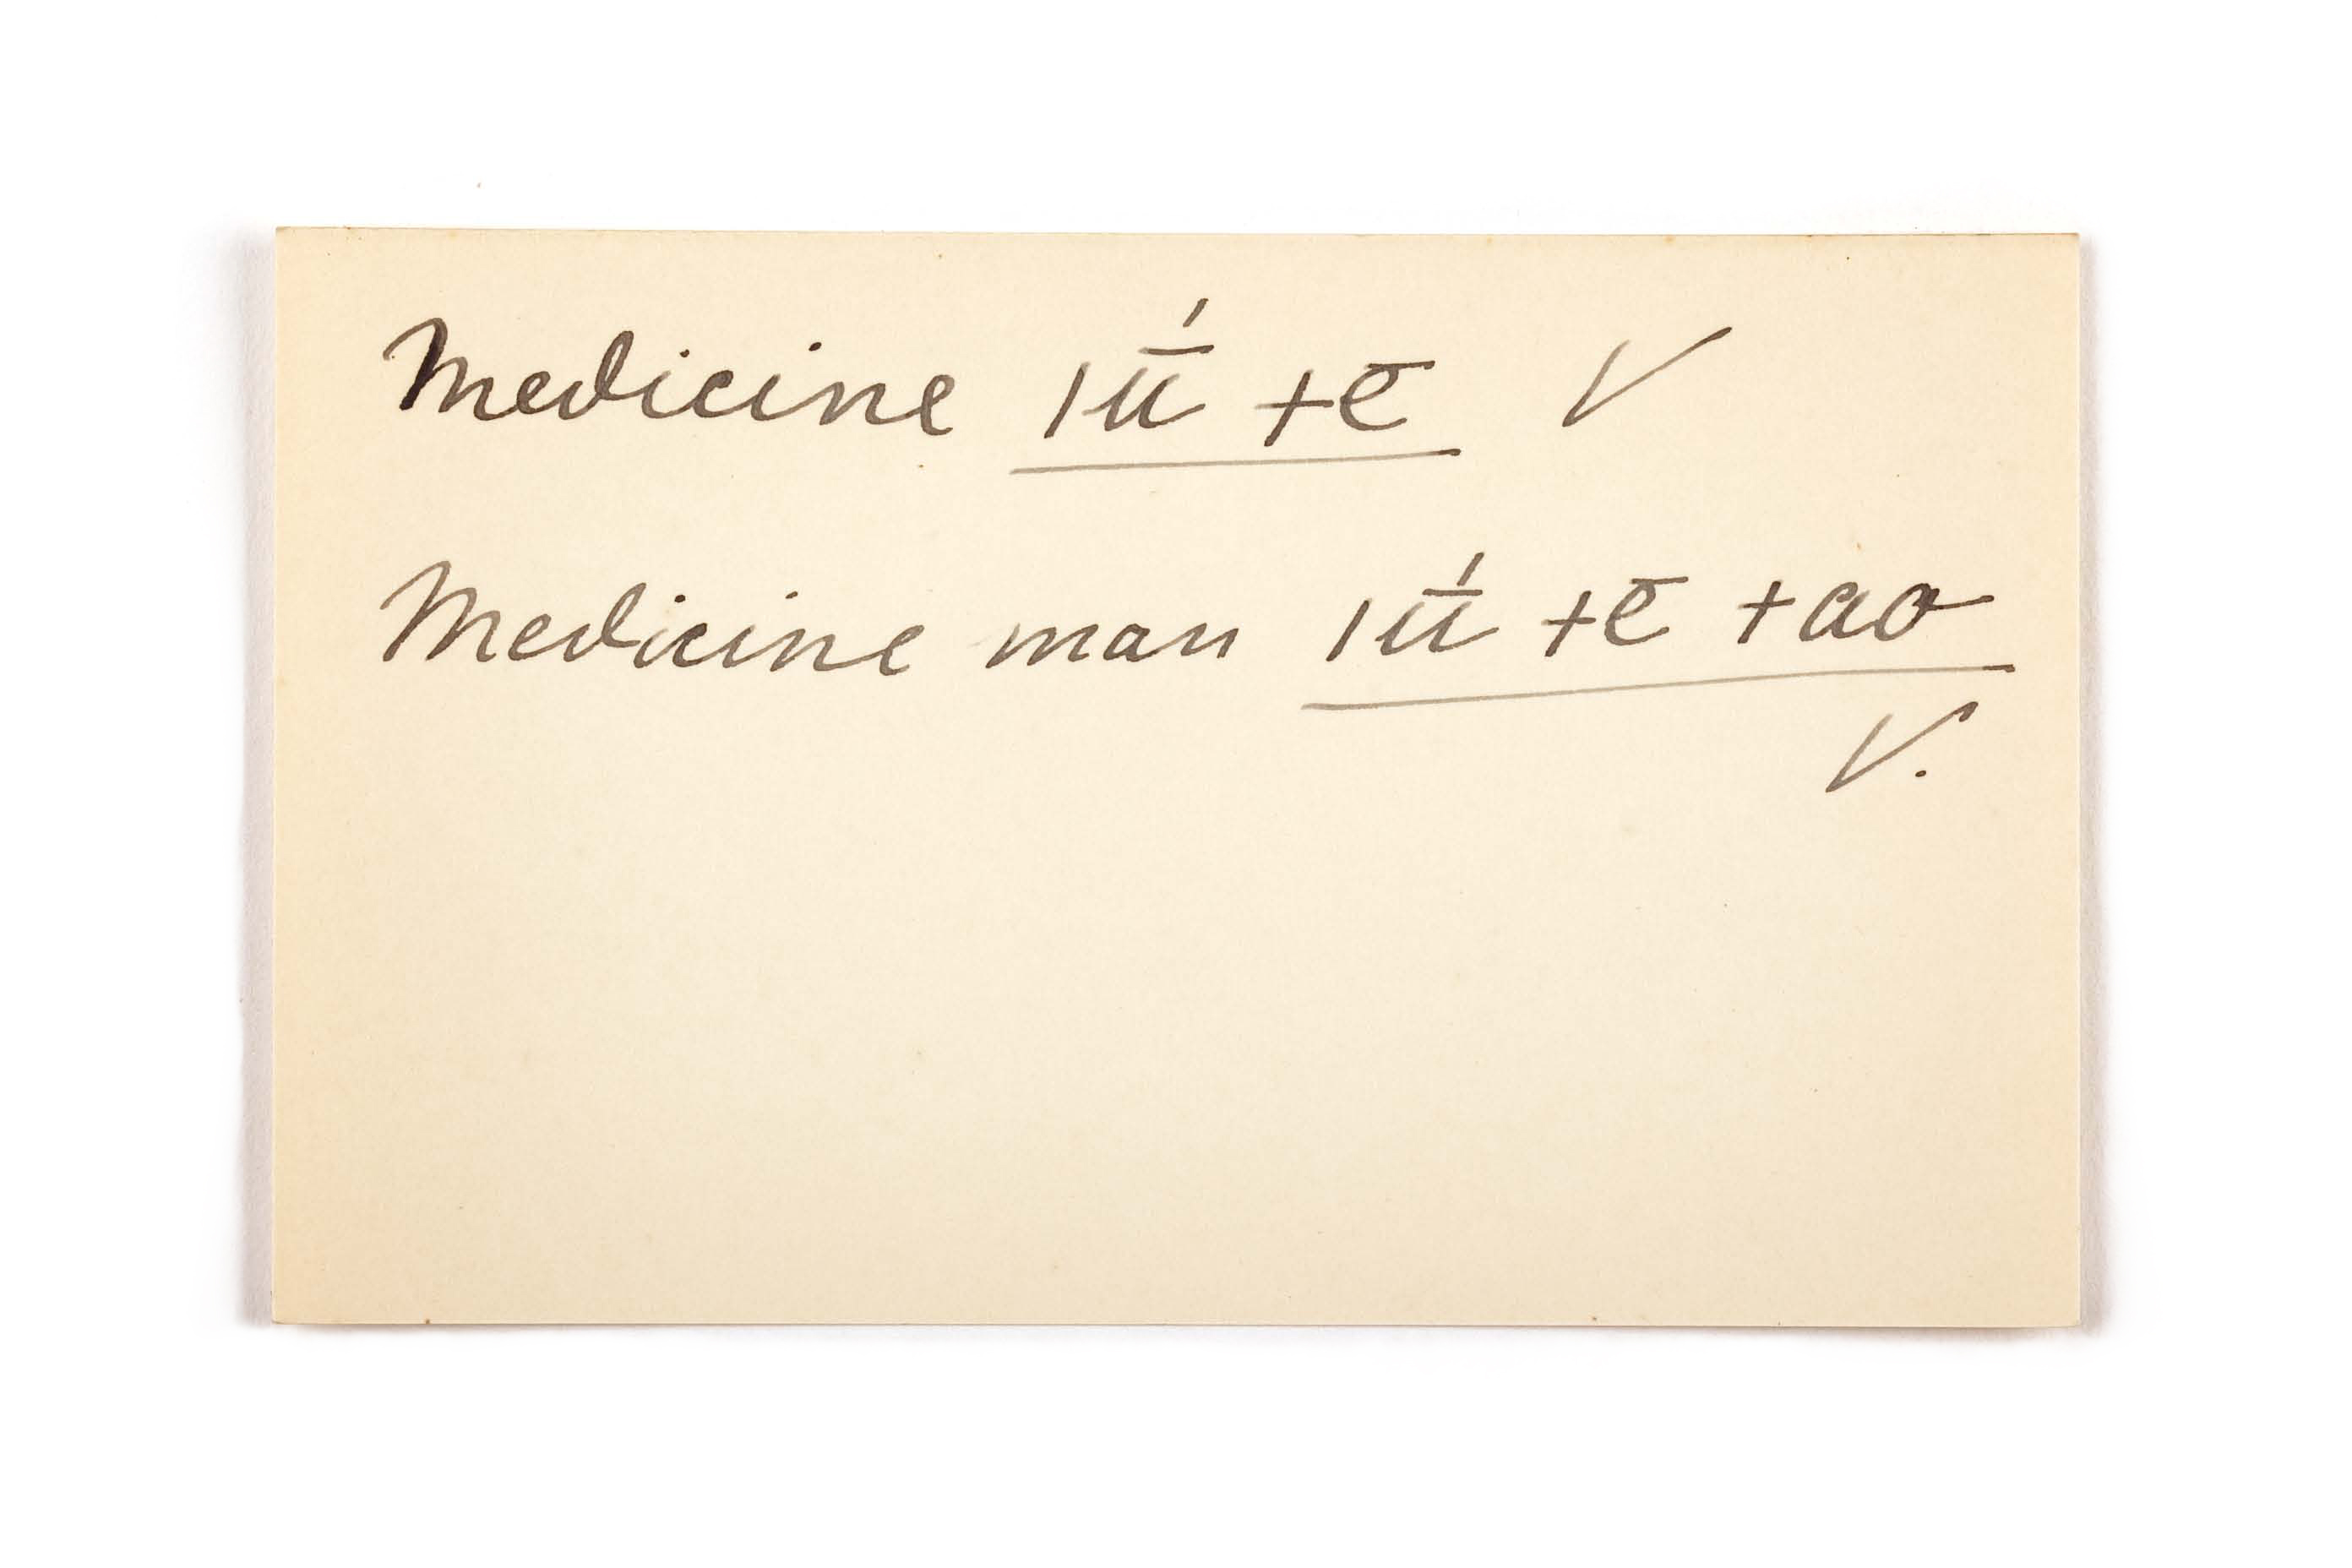 Medicine ıū́ +ē √
Medicine man ıū́ +ē +ao
√.